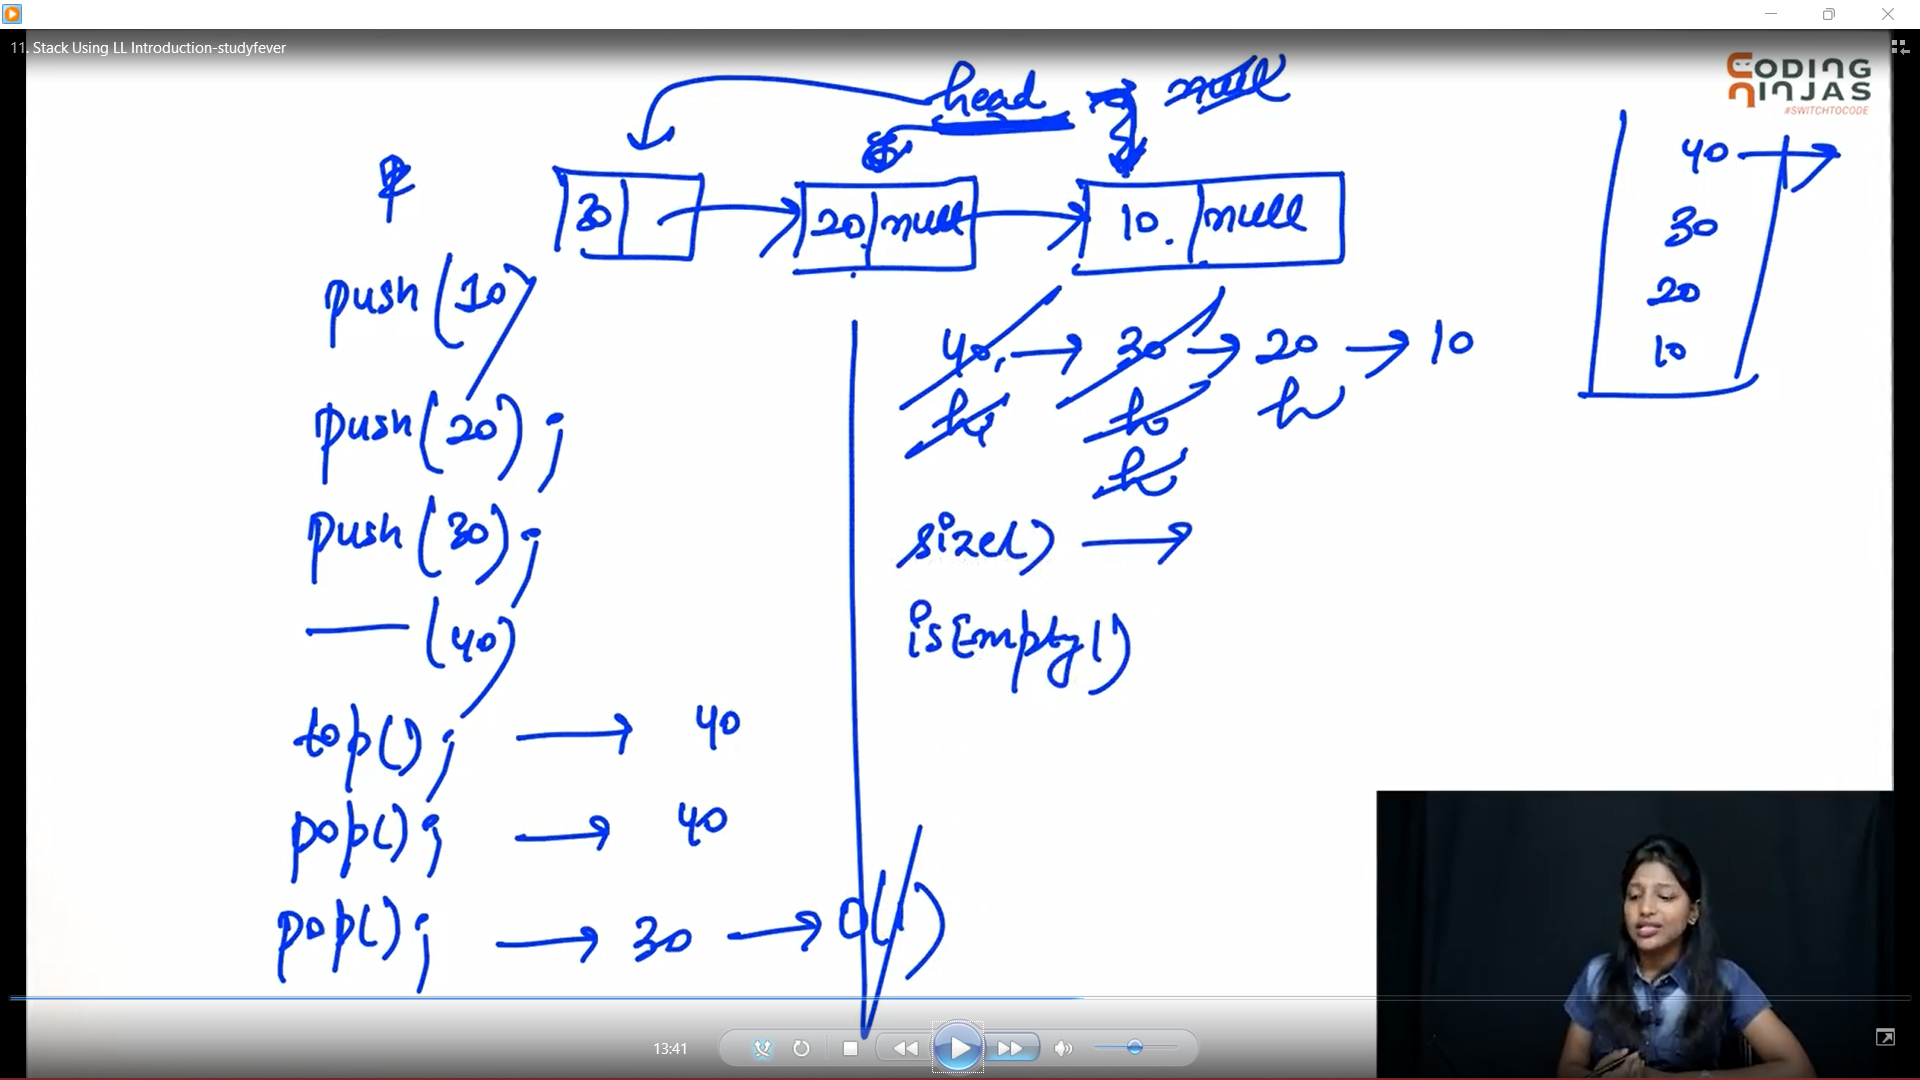 11. Stack Using LL Introduction-studyfever
CODING
NINJAS
#SWITCHTOCODE
head → null
30 20 null 10 null
40
30
20
10
push(10)
push(20);
push(30);
— (40)
top(); → 40
pop(); → 40
pop(); → 30 → O(1)
40 → 30 → 20 → 10
h h h
h
size() →
isEmpty()
13:41